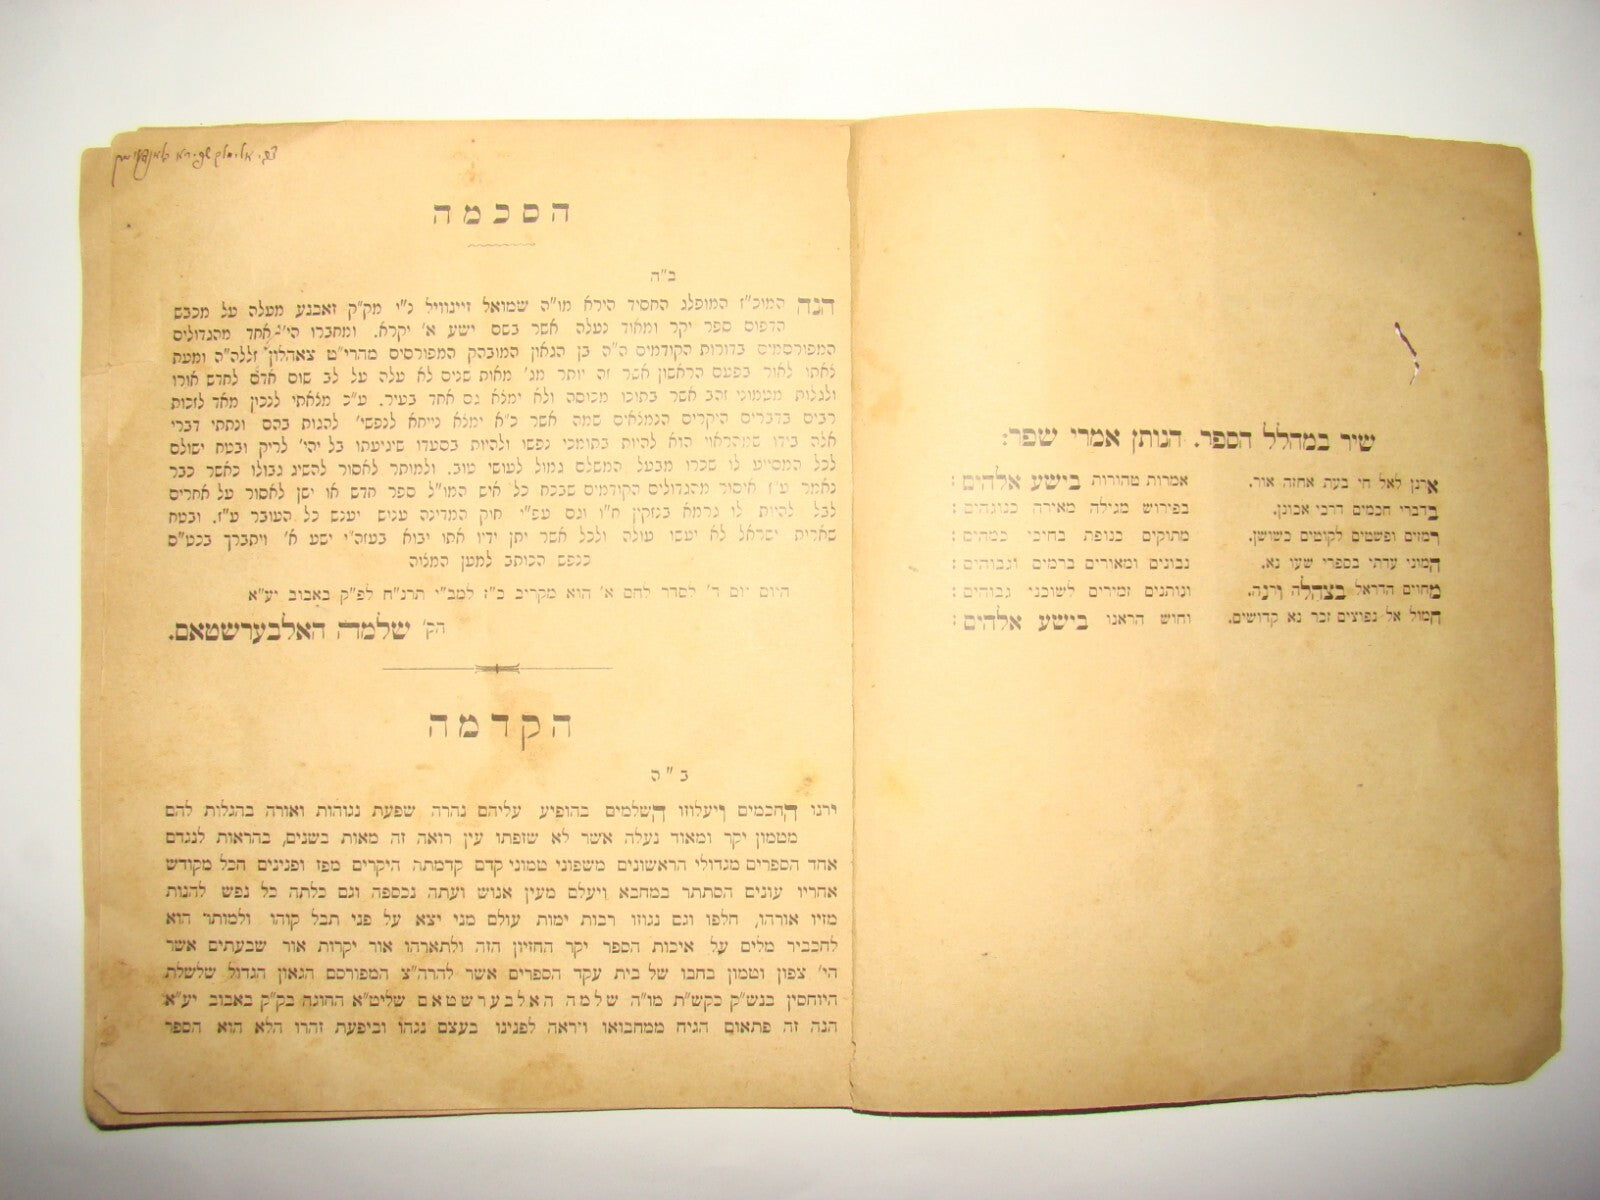 שיר במהלל הספר. הנותן אמרי שפר:
ארנן לאל חי בעת אחזה אור. אמרות טהורות בישע אלהים:
בדברי חכמים דרכי אבונן. בפירוש מגילה מאירה כנוגהים:
רמזים ופשטים לקוטים כשושן. מתוקים כנופת בחיכי כמהים:
המוני עדתי בספרי שעו נא. נבונים ומאורים ברמים וגבוהים:
מחוים הדראל בצהלה ורנה. ונותנים זמירים לשוכני גבוהים:
המול אל נפוצים זכר נא קדושים. וחוש הראנו בישע אלהים:
הסכמה
ב"ה
הנה המוכ"ז המופלג החסיד הירא מו"ה שמואל זיינוויל נ"י מק"ק זאבנע מעלה על מכבש
הדפוס ספר יקר ומאוד נעלה אשר בשם ישע א' יקרא. ומחברו הי' אחד מהגדולים
המפורסמים בדורות הקודמים ה"ה בן הגאון המובהק המפורסים מהרי"ט צאהלון זללה"ה ומעת
לאתו לאור בפעם הראשון אשר זה יותר מג' מאות שנים לא עלה על לב שום אדם לחדש אורו
ולגלות מטמוני זהב אשר בתוכו מכוסה ולא ימלא גם אחד בעיר. ע"כ מלאתי לנכון מאד לזכות
רבים בדברים היקרים הנמלאים שמה אשר כ"א ימלא נייחא לנפשי' להגות בהם ונתתי דברי
אלה בידו שמהראוי הוא להיות בתומכי נפשו ולהיות בסעדו שיגיעתו בל יהי' לריק ובטח ישולם
לכל המסייע לו שכרו מבעל המשלם גמול לעושי טוב. ולמותר לאסור להשיג גבולו כאשר כבר
נאמר ע"ז איסור מהגדולים הקודמים שבכח כל איש המו"ל ספר חדש או ישן לאסור על אחרים
לבל להיות לו גרמא בנזקין ח"ו וגם עפ"י חוק המדינה ענוש יענש כל העובר ע"ז. ובטח
שארית ישראל לא יעשו עולה ולכל אשר יתן ידיו אתו יבוא בעזה"י ישע א' ויתברך בכט"ס
כנפש הכותב למען המלוה
היום יום ד' לסדר לחם א' הוא מקריב כ"ז למב"י תרנ"ח לפ"ק באבוב יע"א
הק' שלמה האלבערשטאם.
הקדמה
ב"ה
ירנו החכמים ויעלוזו השלמים בהופיע עליהם נהרה שפעת נגוהות ואורה בהגלות להם
מטמון יקר ומאוד נעלה אשר לא שזפתו עין רואה זה מאות בשנים, בהראות לנגדם
אחד הספרים מגדולי הראשונים משפוני טמוני קדם קדמתה היקרים מפז ופנינים הכל מקודש
אחריו עונים הסתתר במחבא ויעלם מעין אנוש ועתה נכספה וגם כלתה כל נפש להנות
מזיו אורהו, חלפו וגם נגוזו רבות ימות עולם מני יצא על פני תבל קוהו ולמותר הוא
להכביר מלים על איכות הספר יקר החזיון הזה ולתארהו אור יקרות אור שבעתים אשר
הי' צפון וטמון בחבו של בית עקד הספרים אשר להרה"צ המפורסם הגאון הגדול שלשלת
היוחסין בנש"ק כקש"ת מו"ה שלמה האלבערשטאם שליט"א ההוגה בק"ק באבוב יע"א
הנה זה פתאום הגיח ממחבואו ויראה לפנינו בעצם נגהו וביפעת זהרו הלא הוא הספר